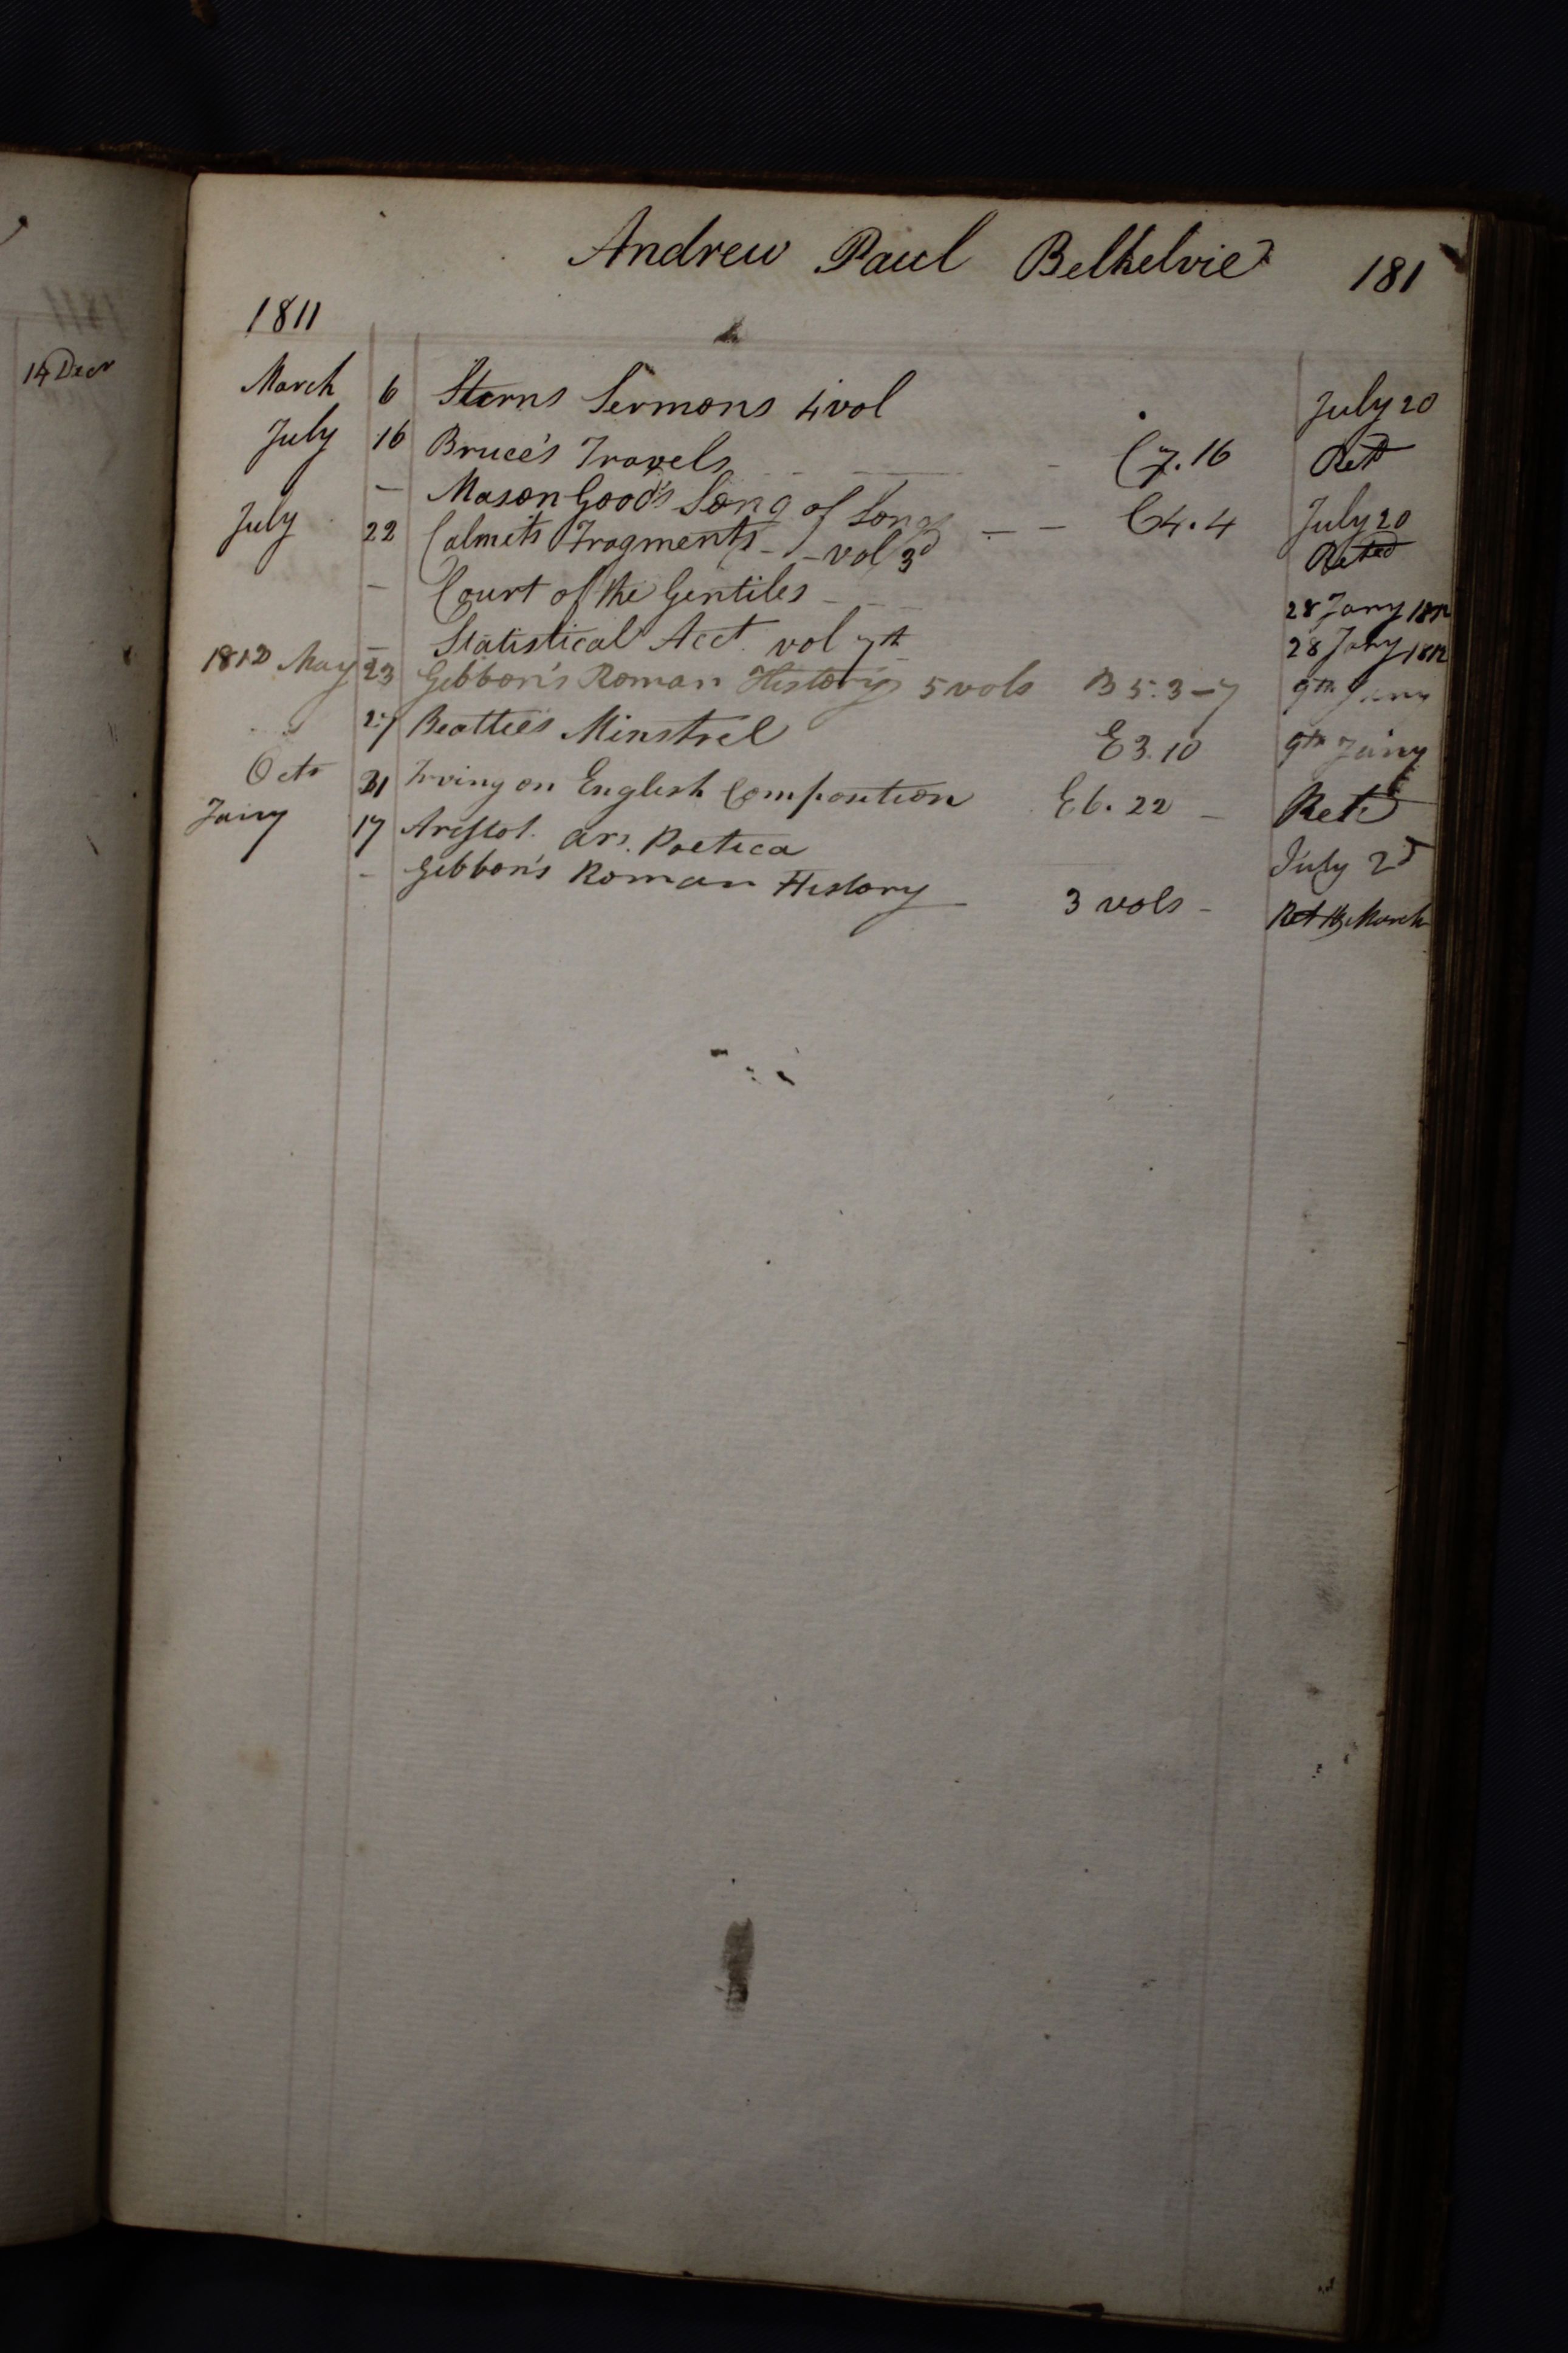 14 Decr
Andrew Paul Belhelvie 181
1811
March 6 Sterns Sermons 4 vol July 20
July 16 Bruce's Travels C7.16 Retd
— Mason Good's Song of Songs — — C4.4 July 20
July 22 Calmets Fragments - - vol 3d Reted
— Court of the Gentiles 28 Jany 1812
— Statistical Acct. vol 7th 28 Jany 1812
1812 May 23 Gibbon's Roman History 5 vols B 5.3-7 9th Jany
27 Beattie's Minstrel E3.10 9th Jany
Octr 31 Irving on English Composition E6.22 - Retd
Jany 17 Aristot. ars. Poetica July 2d
- Gibbon's Roman History 3 vols - Ret March